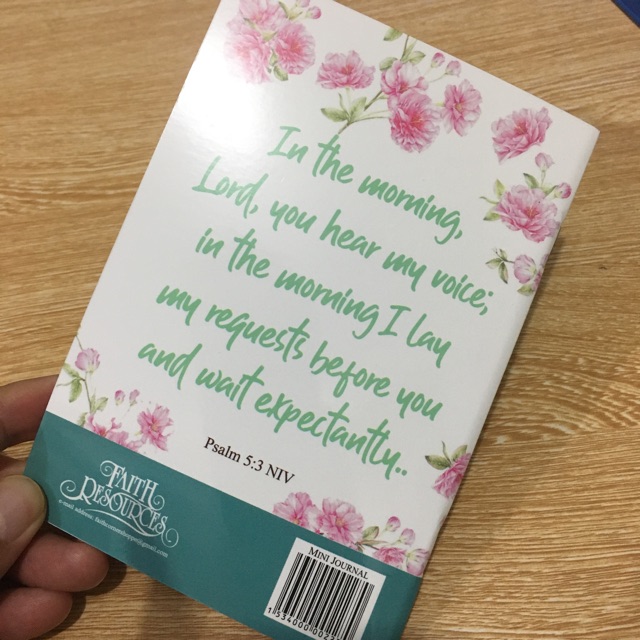 In the morning,
Lord, you hear my voice;
in the morning I lay
my requests before you
and wait expectantly..
Psalm 5:3 NIV
FAITH
RESOURCES
e-mail address:
MINI JOURNAL